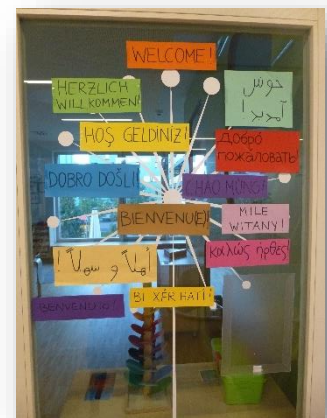 WELCOME!
HERZLICH
WILLKOMMEN!
خوش
آمدید!
HOŞ GELDİNİZ!
Добро
пожаловать!
DOBRO DOŠLI!
CHÀO MỪNG!
BIENVENU(E)!
MILE
WITANY!
καλώς ήρθες!
أهلاً و سهلاً !
BENVENUTO!
BI XÊR HATÎ!